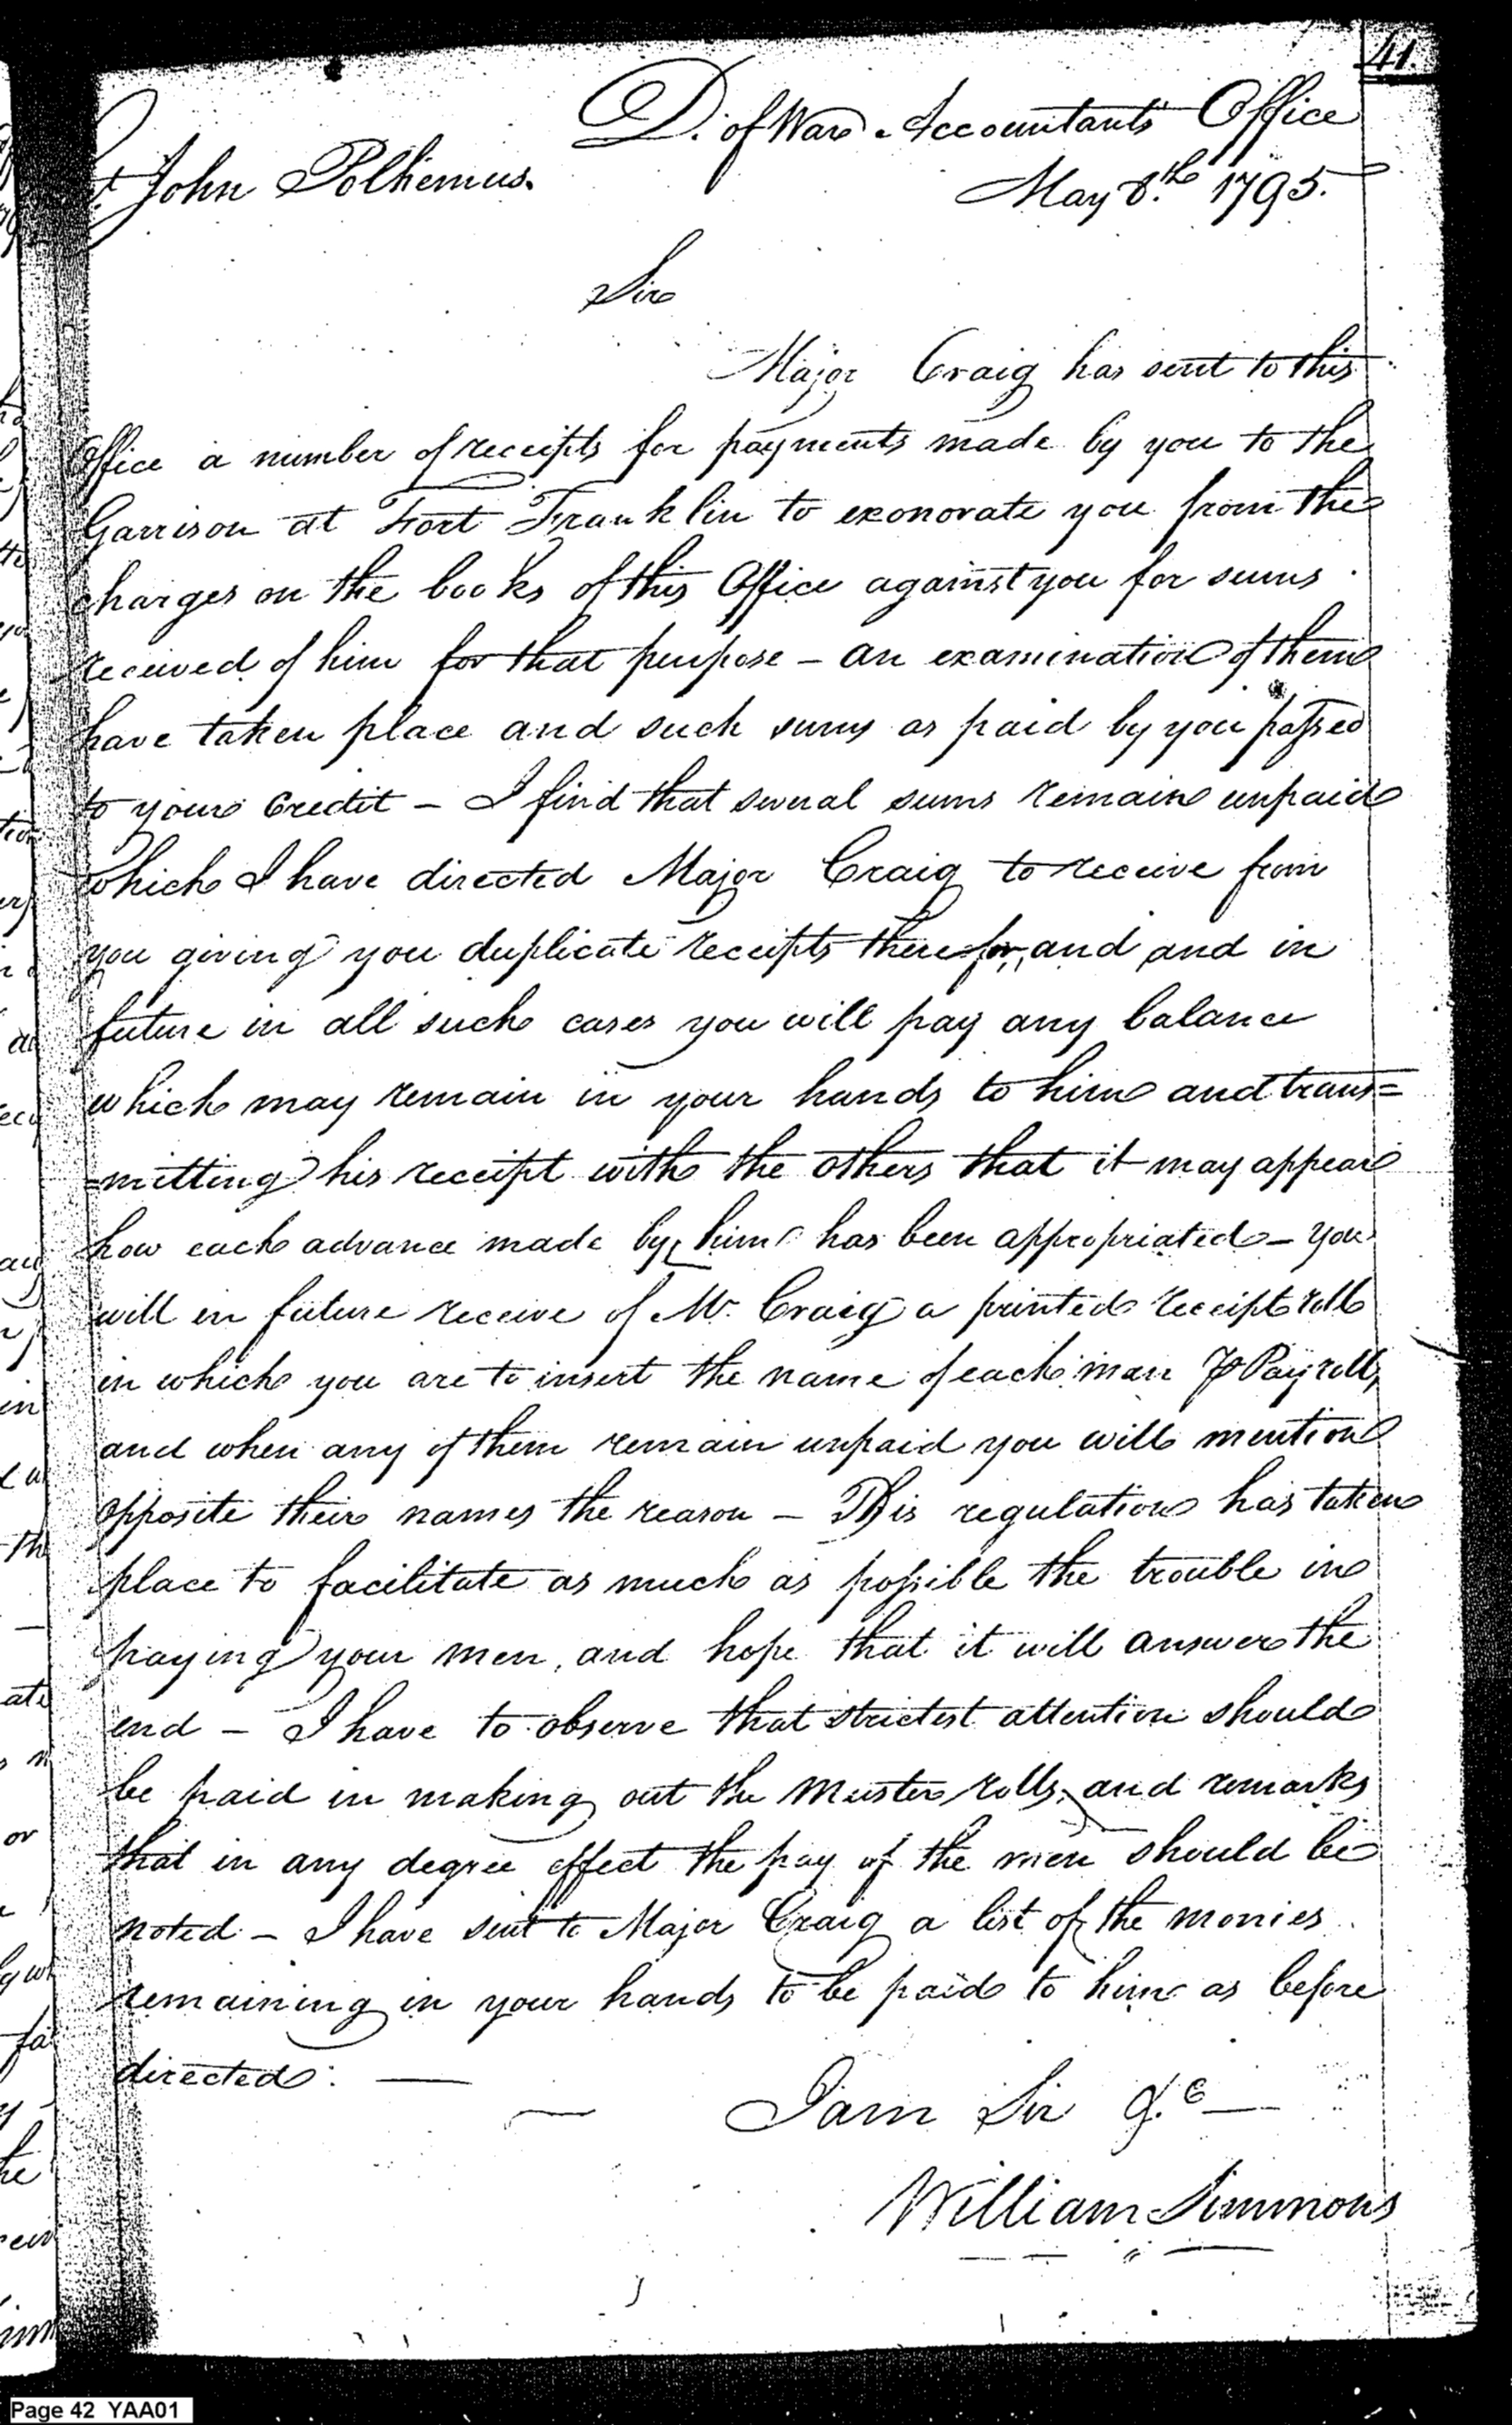 41.
D. of War Accountants Office
Ct. John Polhemus.
May 8.th 1795.
Sir
Major Craig has sent to this
Office a number of receipts for payments made by you to the
Garrison at Fort Franklin to exonorate you from the
charges on the books of this Office against you for sums
received of him for that purpose - an examination of them
have taken place and such sums as paid by you passed
to your Credit - I find that several sums remain unpaid
which I have directed Major Craig to receive from
you giving you duplicate receipts therefor, and and in
future in all such cases you will pay any balance
which may remain in your hands to him and trans=
=mitting his receipt with the others that it may appear
how each advance made by him has been appropriated - you
will in future receive of Mr. Craig a printed receipt roll
in which you are to insert the name of each man ⅌ Pay roll,
and when any of them remain unpaid you will mention
opposite their names the reason - This regulation has taken
place to facilitate as much as possible the trouble in
paying your men, and hope that it will answer the
end - I have to observe that strictest attention should
be paid in making out the Muster rolls, and remarks
that in any degree effect the pay of the men should be
noted - I have sent to Major Craig a list of the monies
remaining in your hands to be paid to him as before
directed: —
I am Sir &.c —
William Simmons
Page 42 YAA01